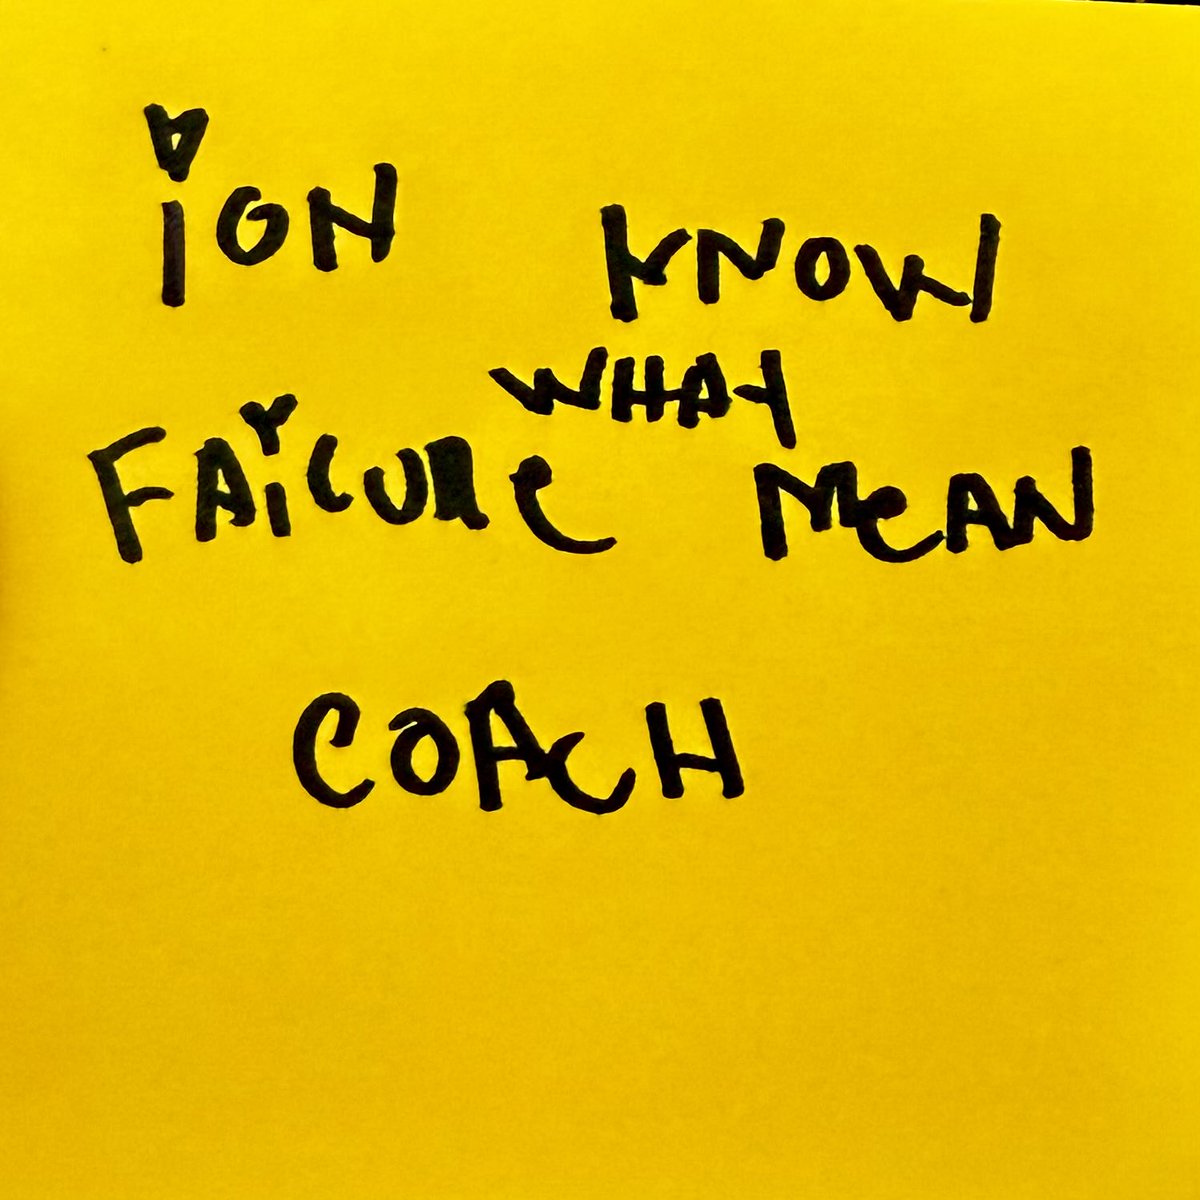 iON KNOW
WHAT
FAiLURe MeAN
COACH